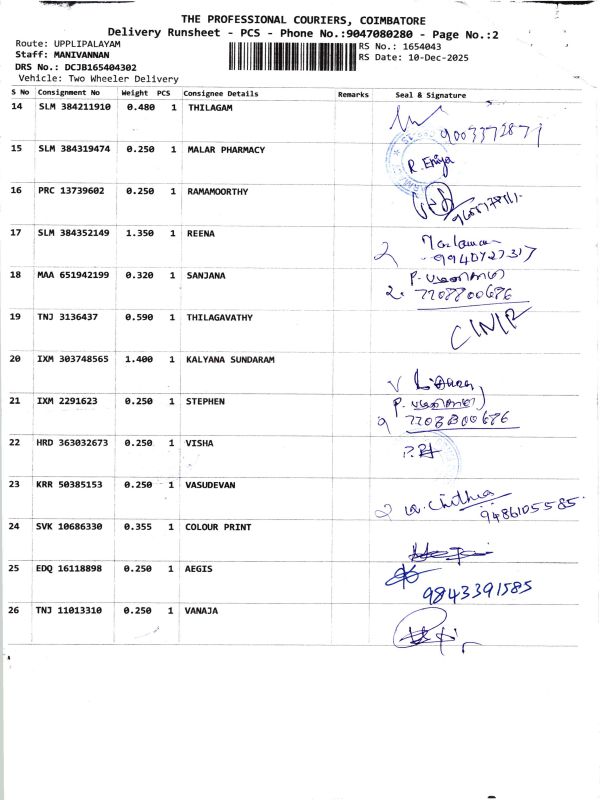 THE PROFESSIONAL COURIERS, COIMBATORE
Delivery Runsheet - PCS - Phone No.:9047080280 - Page No.:2
Route: UPPLIPALAYAM
Staff: MANIVANNAN
DRS No.: DCJB165404302
Vehicle: Two Wheeler Delivery
RS No.: 1654043
RS Date: 10-Dec-2025
S No Consignment No Weight PCS Consignee Details Remarks Seal & Signature
14 SLM 384211910 0.480 1 THILAGAM
9003372871
15 SLM 384319474 0.250 1 MALAR PHARMACY
R. Eniya
16 PRC 13739602 0.250 1 RAMAMOORTHY
17 SLM 384352149 1.350 1 REENA
9940727317
18 MAA 651942199 0.320 1 SANJANA
2. 7708800686
19 TNJ 3136437 0.590 1 THILAGAVATHY
20 IXM 303748565 1.400 1 KALYANA SUNDARAM
21 IXM 2291623 0.250 1 STEPHEN
7708800686
22 HRD 363032673 0.250 1 VISHA
23 KRR 50385153 0.250 1 VASUDEVAN
Chithra
9486105585
24 SVK 10686330 0.355 1 COLOUR PRINT
25 EDQ 16118898 0.250 1 AEGIS
9843391585
26 TNJ 11013310 0.250 1 VANAJA